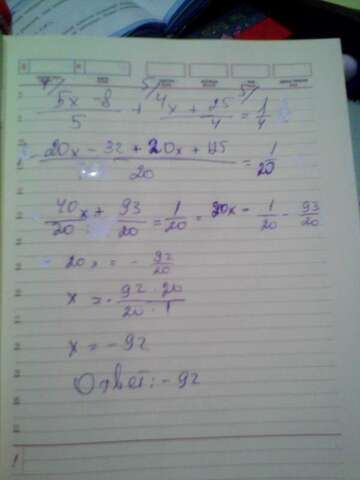 4/ 5/ 5/
5x - 8 / 5 + 4x + 25 / 4 = 1 / 4
20x - 32 + 20x + 125 / 20 = 1 / 20
40x / 20 + 93 / 20 = 1 / 20 = 20x = 1 / 20 - 93 / 20
20x = - 92 / 20
x = - 92 · 20 / 20 · 1
x = - 92
Ответ: - 92